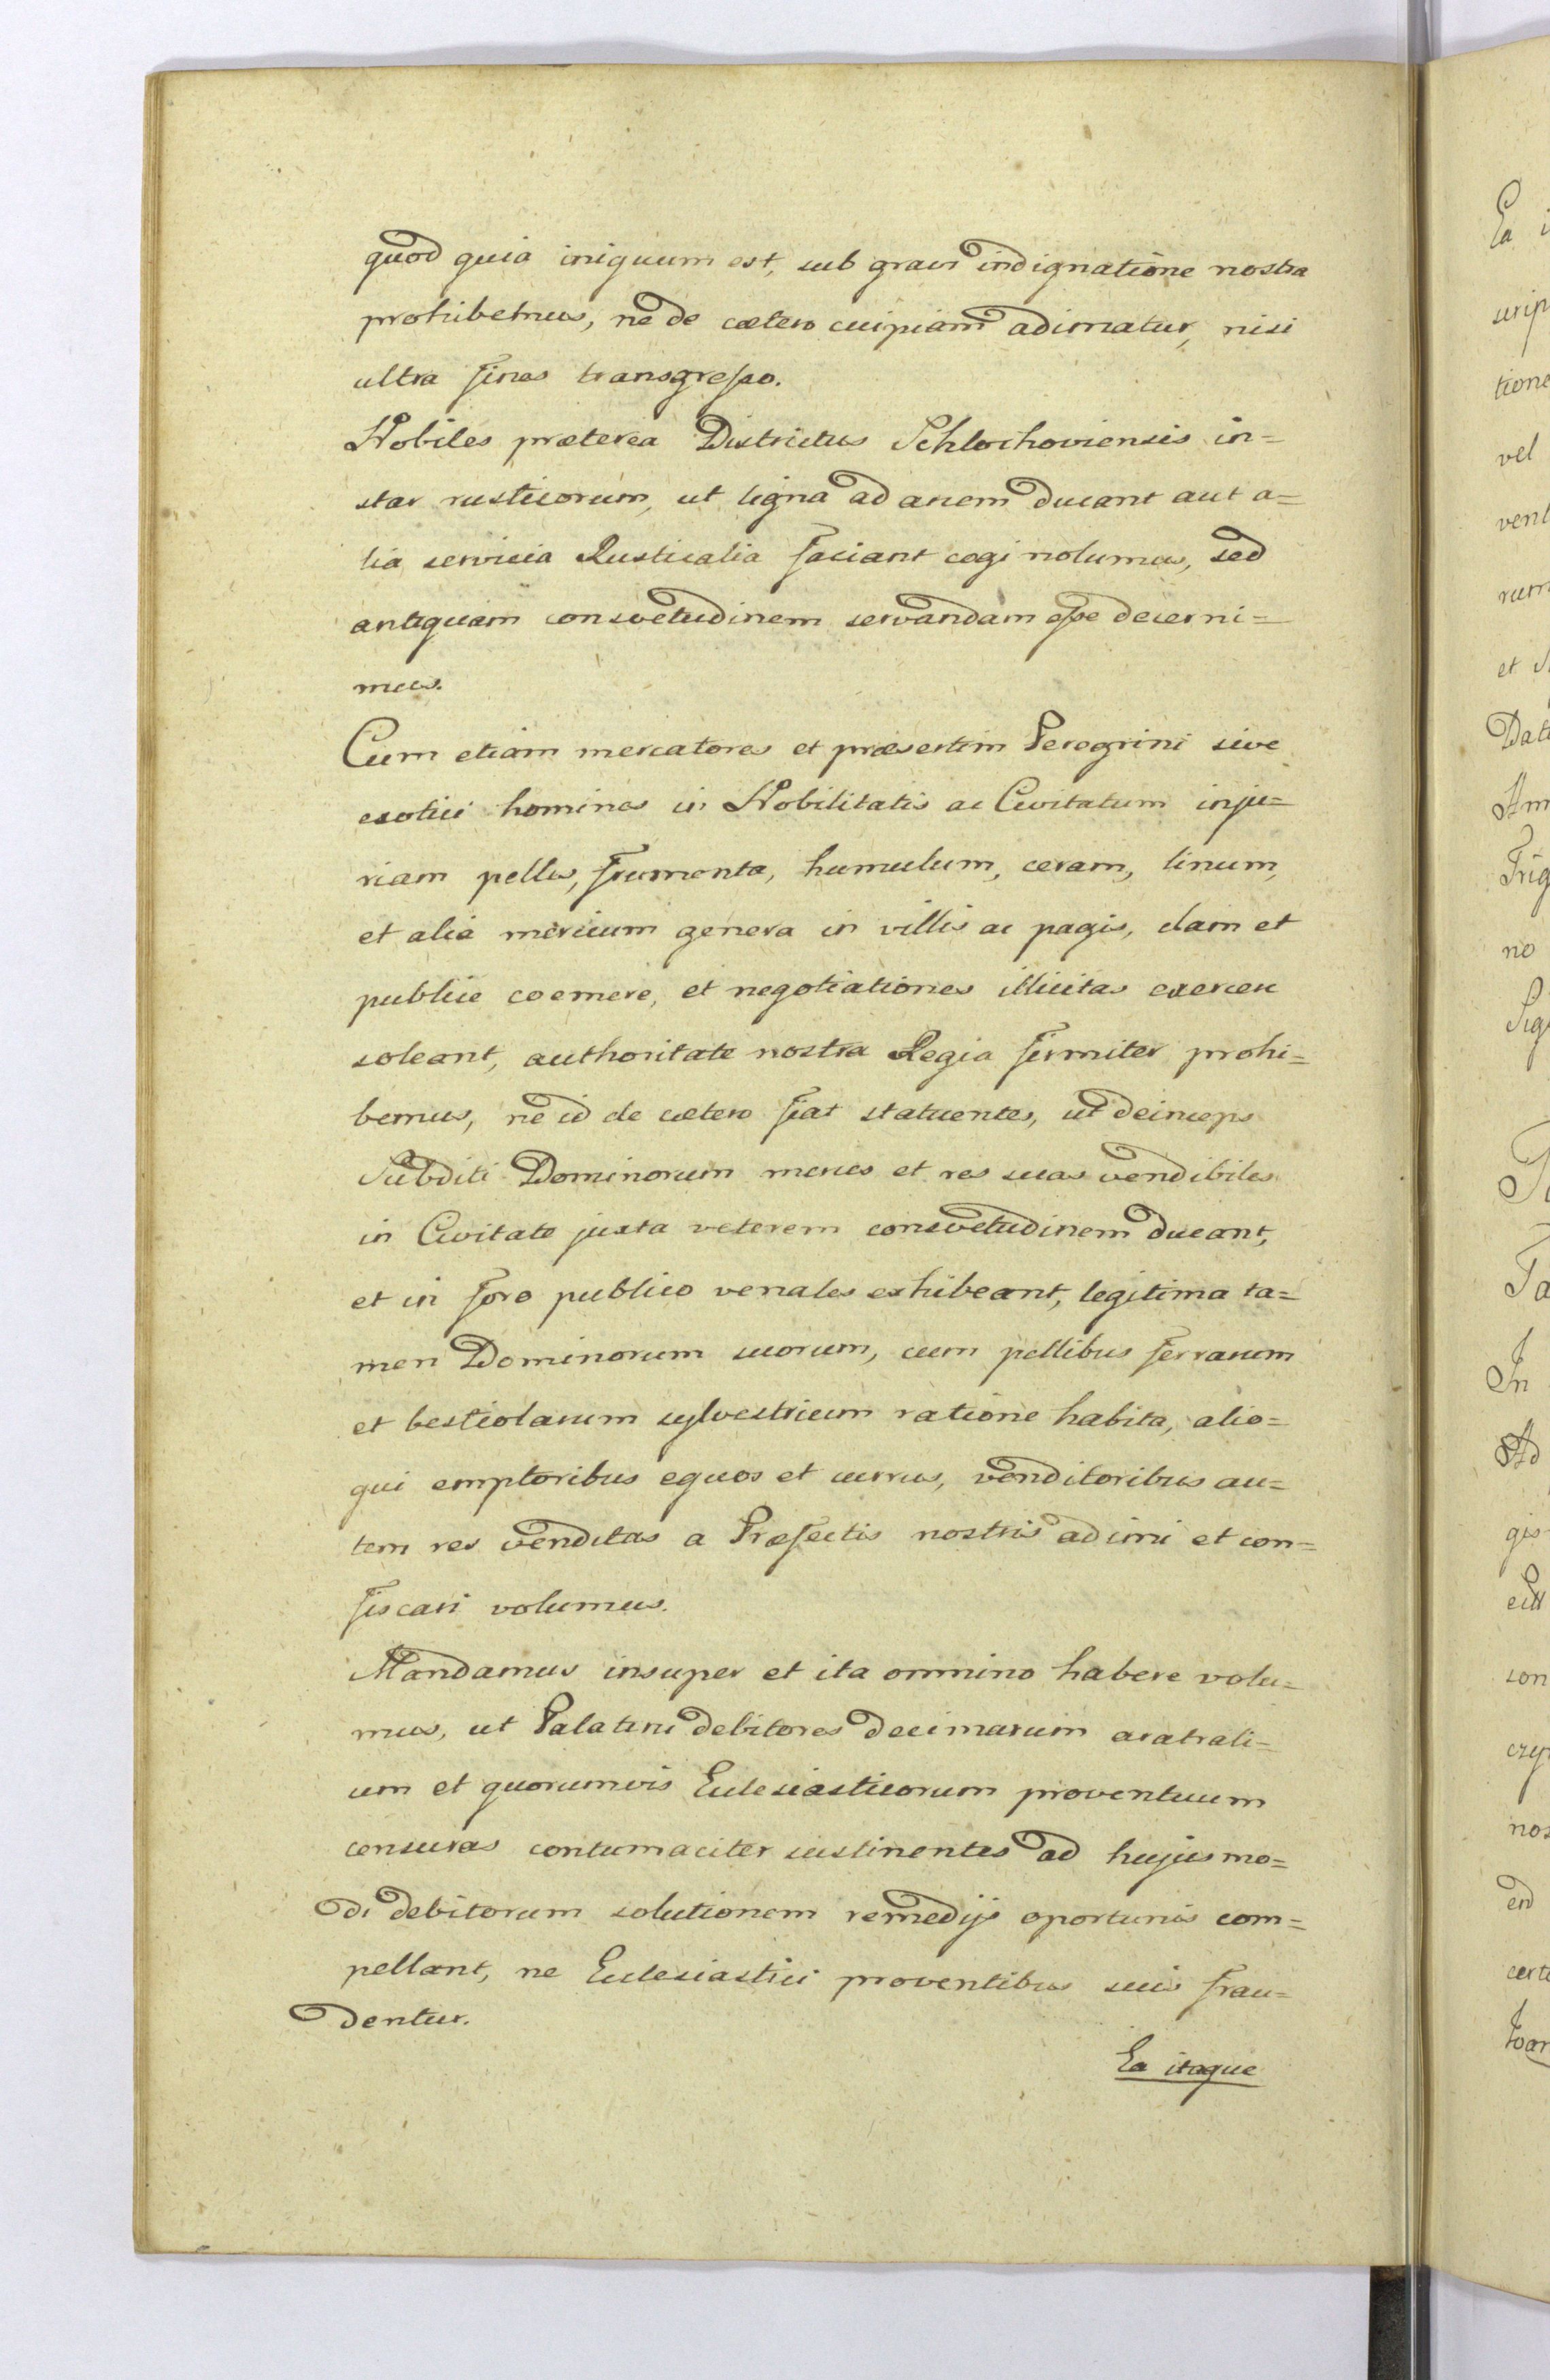 quod quia iniquum est, sub gravi indignatione nostra
prohibemus, ne de cætero cuipiam adimatur, nisi
ultra fines transgresso.
Nobiles præterea Districtus Schlochoviensis in=
star rusticorum, ut ligna ad arcem ducant aut a=
lia servicia Rusticalia faciant cogi nolumus, sed
antiquam consvetudinem servandam esse decerni=
mus.
Cum etiam mercatores et præsertim Peregrini sive
exotici homines in Nobilitatis ac Civitatum inju=
riam pelles, frumenta, humulum, ceram, linum,
et alia mercium genera in villis ac pagis, clam et
publice coemere, et negotiationes illicitas exercere
soleant, authoritate nostra Regia firmiter prohi=
bemus, ne id de cætero fiat statuentes, ut deinceps
Subditi Dominorum merces et res suas vendibiles
in Civitate juxta veterem consvetudinem ducant,
et in foro publico venales exhibeant, legitima ta=
men Dominorum suorum, cum pellibus ferrarum
et bestiolarum sylvestrium ratione habita, alio=
qui emptoribus equos et currus, venditoribus au=
tem res venditas a Præfectis nostris adimi et con=
fiscari volumus.
Mandamus insuper et ita omnino habere volu=
mus, ut Palatini debitores decimarum aratrali=
um et quorumvis Ecclesiasticorum proventuum
censuras contumaciter sustinentes ad hujusmo=
di debitorum solutionem remedijs oportunis com=
pellant, ne Ecclesiastici proventibus suis frau=
dentur.
Ea itaque